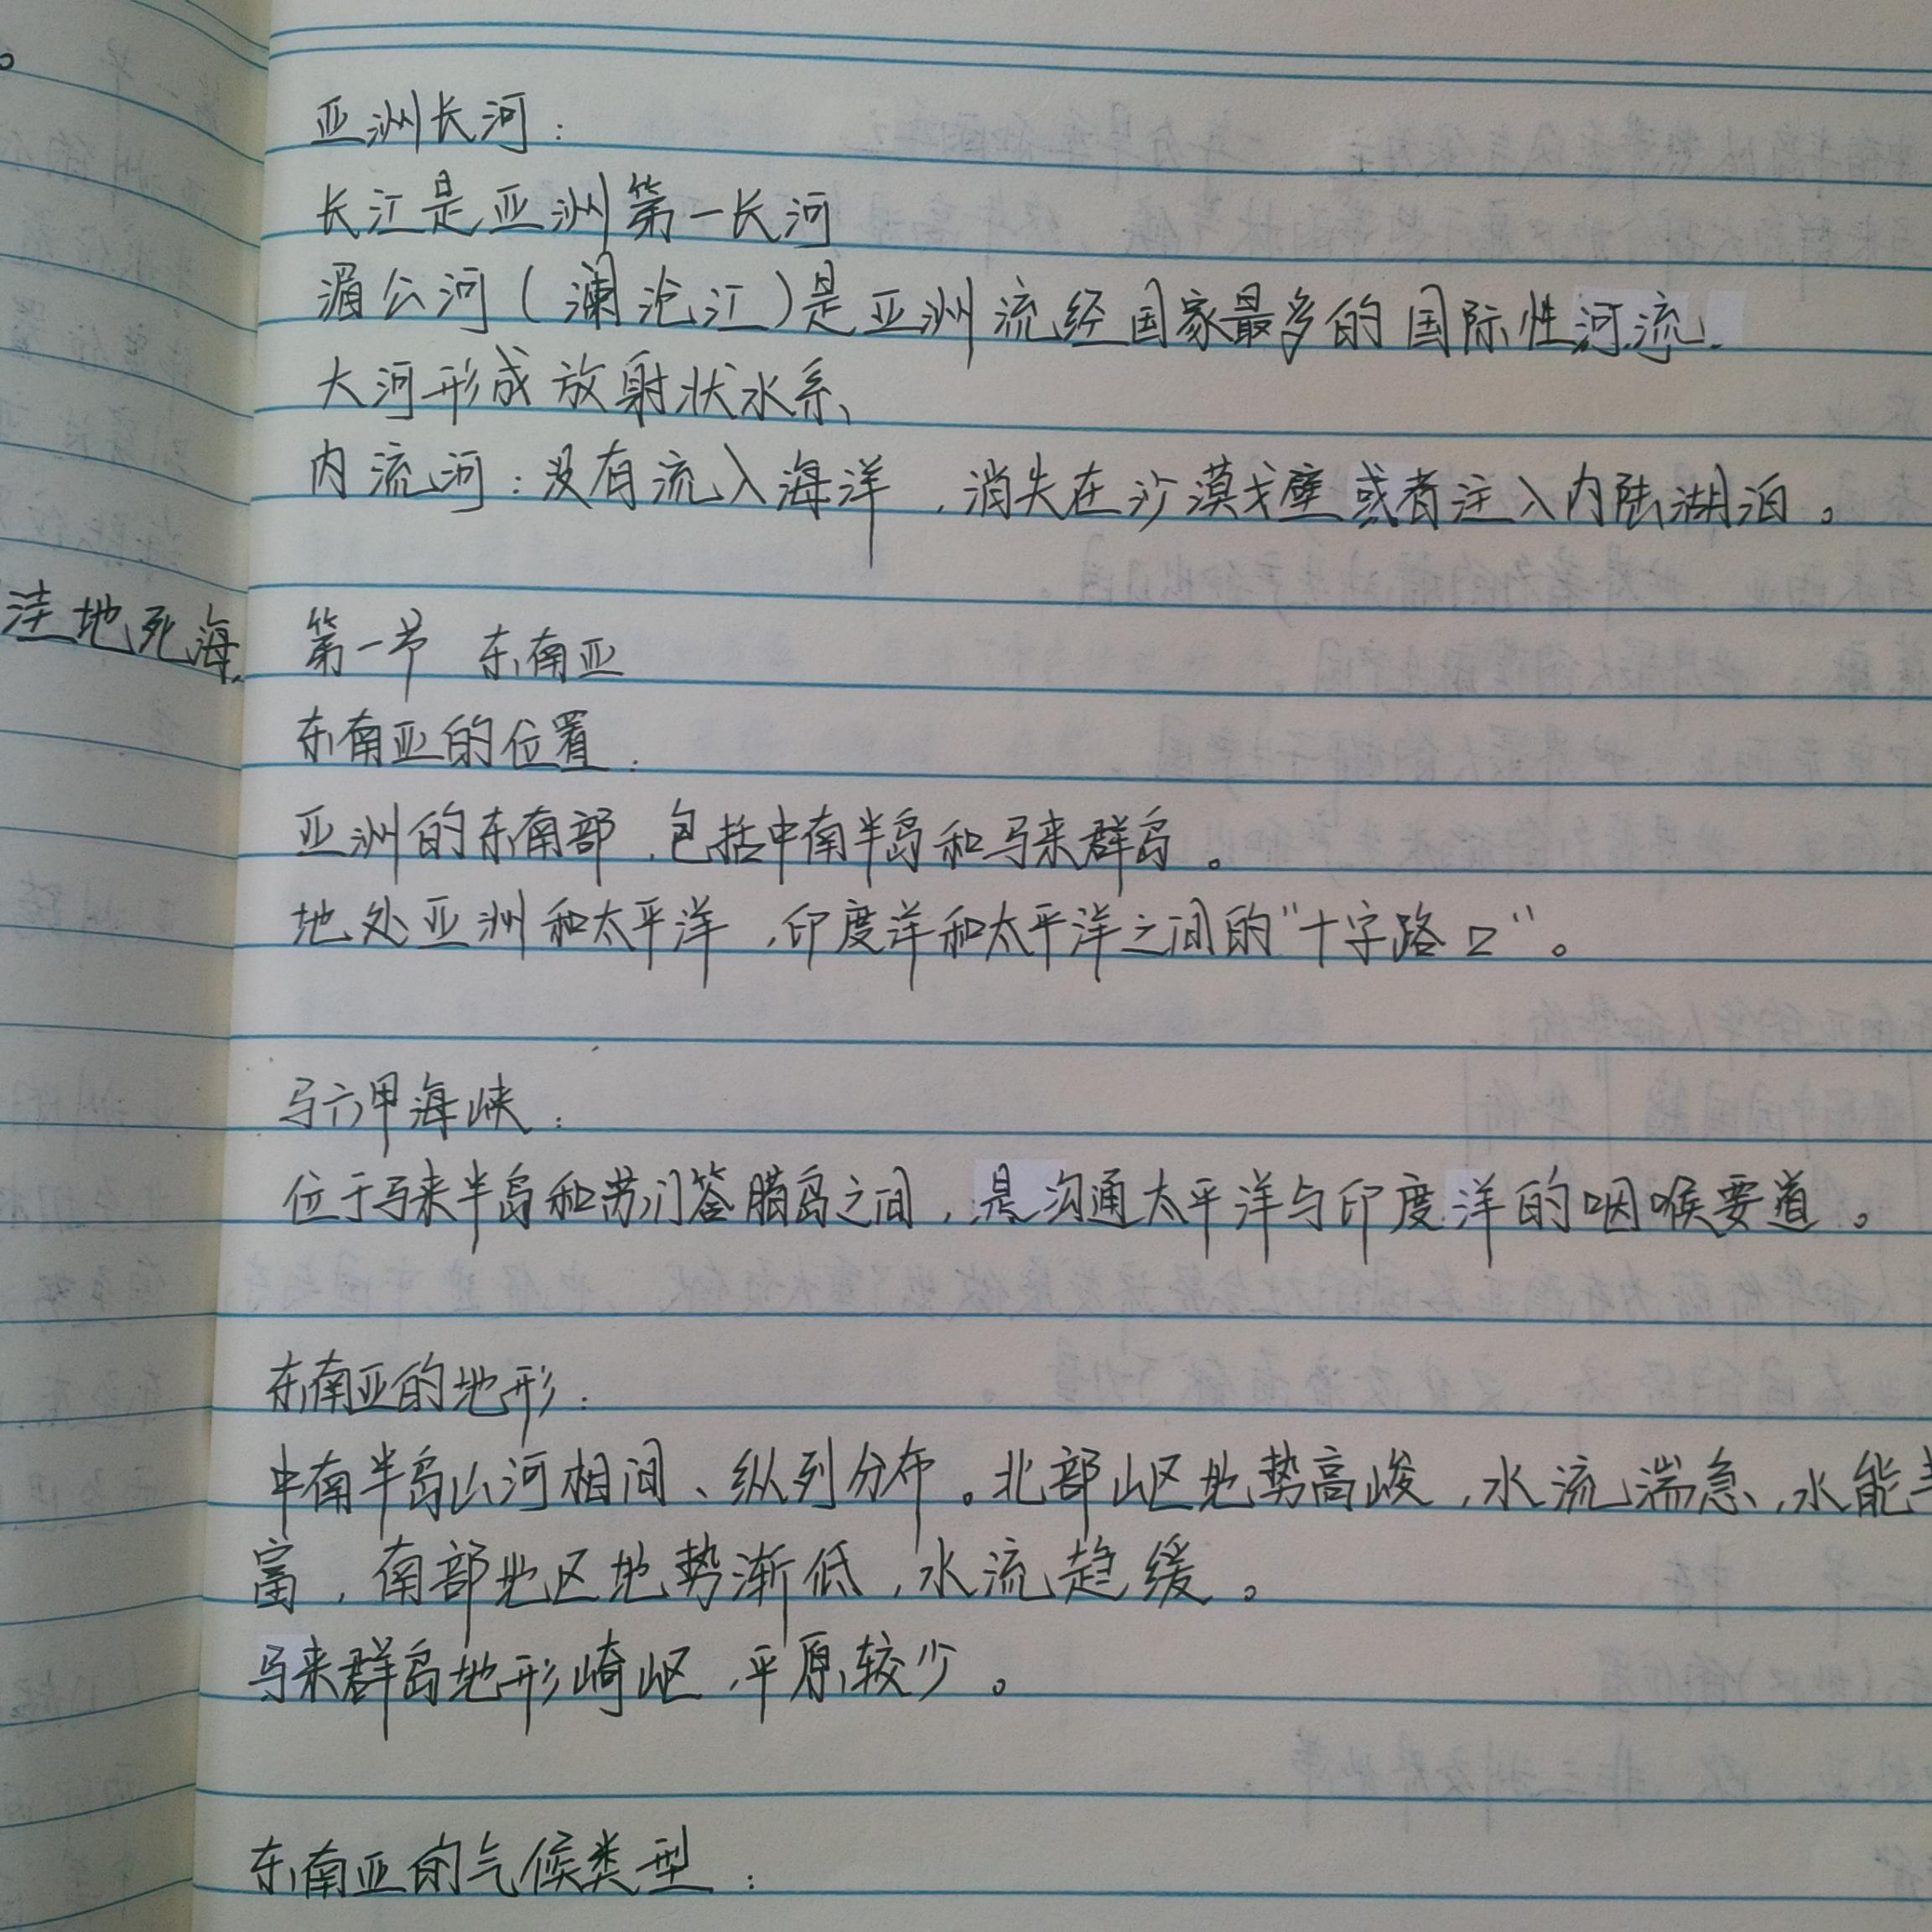 亚洲长河：
长江是亚洲第一长河
湄公河（澜沧江）是亚洲流经国家最多的国际性河流.
大河形成放射状水系、
内流河：没有流入海洋，消失在沙漠戈壁或者注入内陆湖泊。
洼地死海.
第一节 东南亚
东南亚的位置：
亚洲的东南部，包括中南半岛和马来群岛。
地处亚洲和太平洋，印度洋和太平洋之间的"十字路口"。
马六甲海峡：
位于马来半岛和苏门答腊岛之间，是沟通太平洋与印度洋的咽喉要道。
东南亚的地形：
中南半岛山河相间、纵列分布。北部山区地势高峻，水流湍急，水能丰
富，南部地区地势渐低，水流趋缓。
马来群岛地形崎岖，平原较少。
东南亚的气候类型：